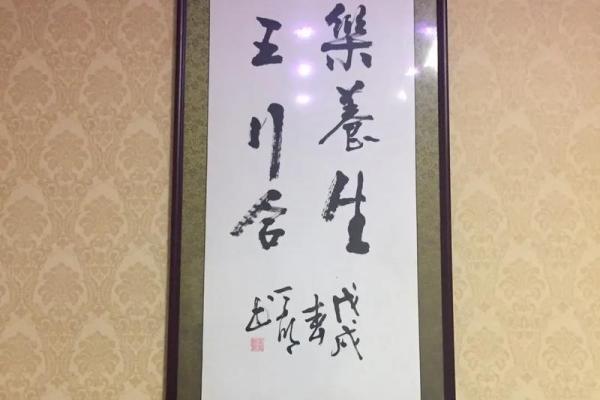 樂養生
王川合
戊戌
春